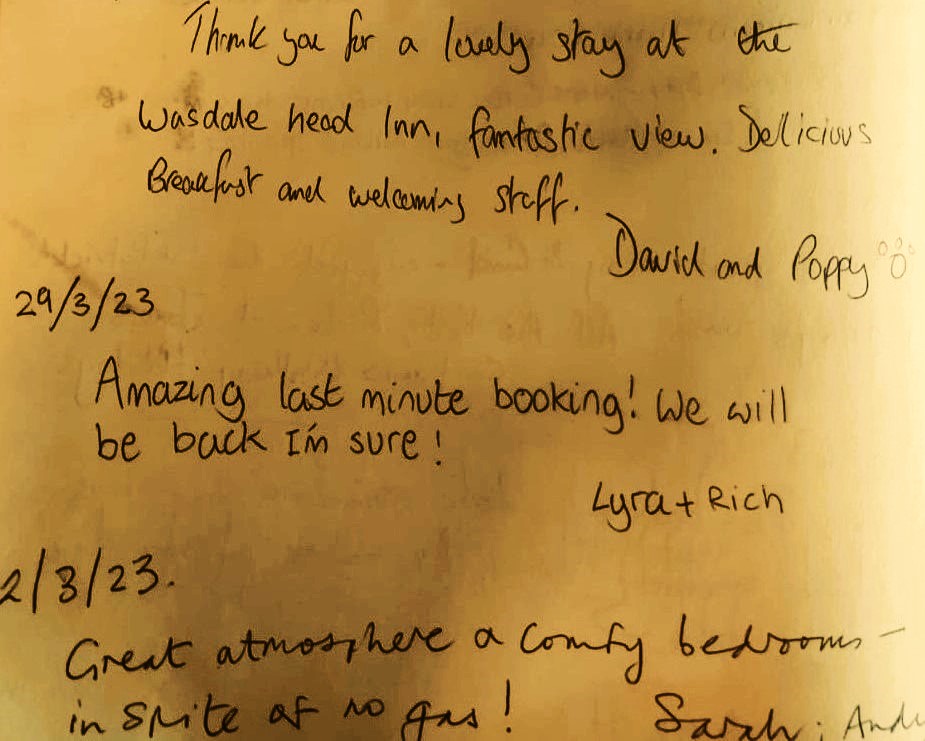 Thank you for a lovely stay at the
Wasdale head Inn, fantastic view. Dellicious
Breakfast and welcoming staff.
David and Poppy
29/3/23
Amazing last minute booking! We will
be back I'm sure!
Lyra + Rich
2/3/23.
Great atmosphere a comfy bedrooms –
in spite of no gas! Sarah